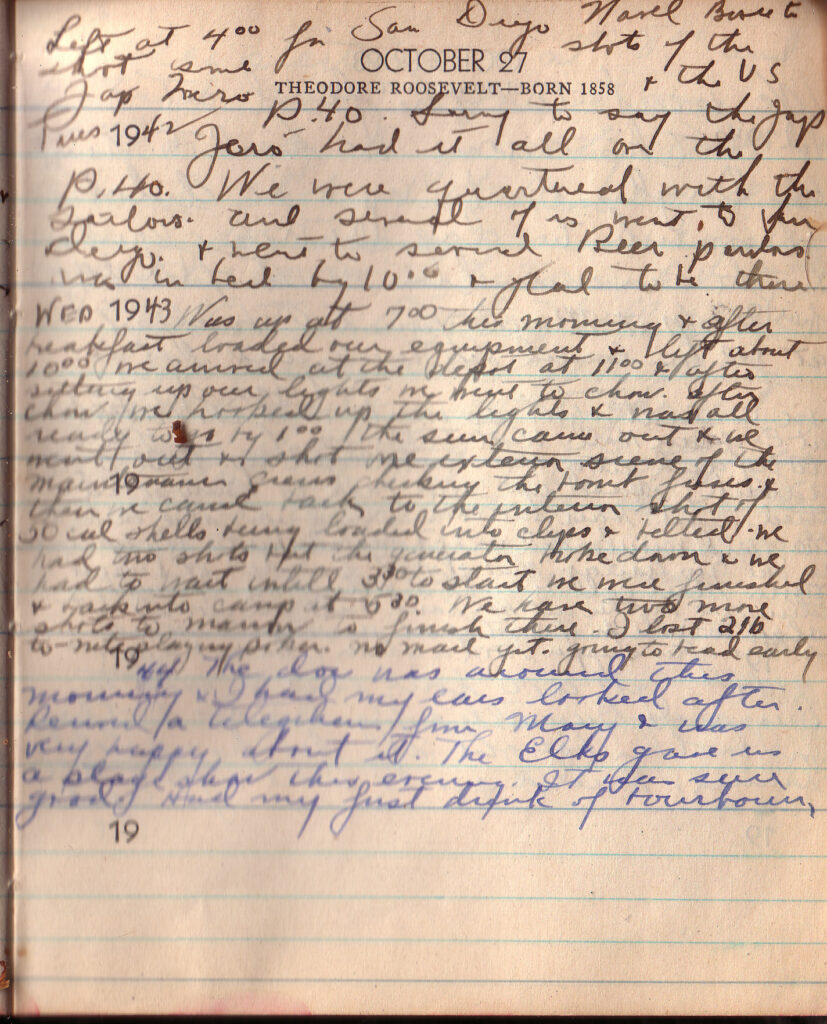 Left at 4⁰⁰ for San Diego Navel Base to
shot some shots of the
OCTOBER 27
Jap Zero & the US
THEODORE ROOSEVELT—BORN 1858
P.40. Sorry to say the Jap
Tues 1942
Zero had it all over the
P.40. We were quartered with the
Sailors. and several of us went to San
Diego. & went to several Beer parlors.
was in bed by 10⁰⁰ & glad to be there
WED 1943 Was up at 7⁰⁰ this morning & after
breakfast loaded our equipment & left about
10⁰⁰ we arrived at the depot at 11⁰⁰ & after
setting up our lights we went to chow. after
chow we hooked up the lights & was all
ready to go by 1⁰⁰ the sun came out & we
went out & shot one exterior scene of the
19
maintenance crews checking the bomb fuses. &
then we came back to the interior shot of
50 cal shells being loaded into clips & belted. we
had two shots but the generator broke down & we
had to wait untill 3³⁰ to start we were finished
& back into camp at 5³⁰. We have two more
shots to to finish there. I lost
to-nite playing poker. no mail yet. going to bead early
19
44 The doc was around this
morning & I had my ears looked after.
Received a telegham from Mary & was
very happy about it. The Elks gave us
a stage show this evening. It was sure
good. Had my first drink of bourboun,
19